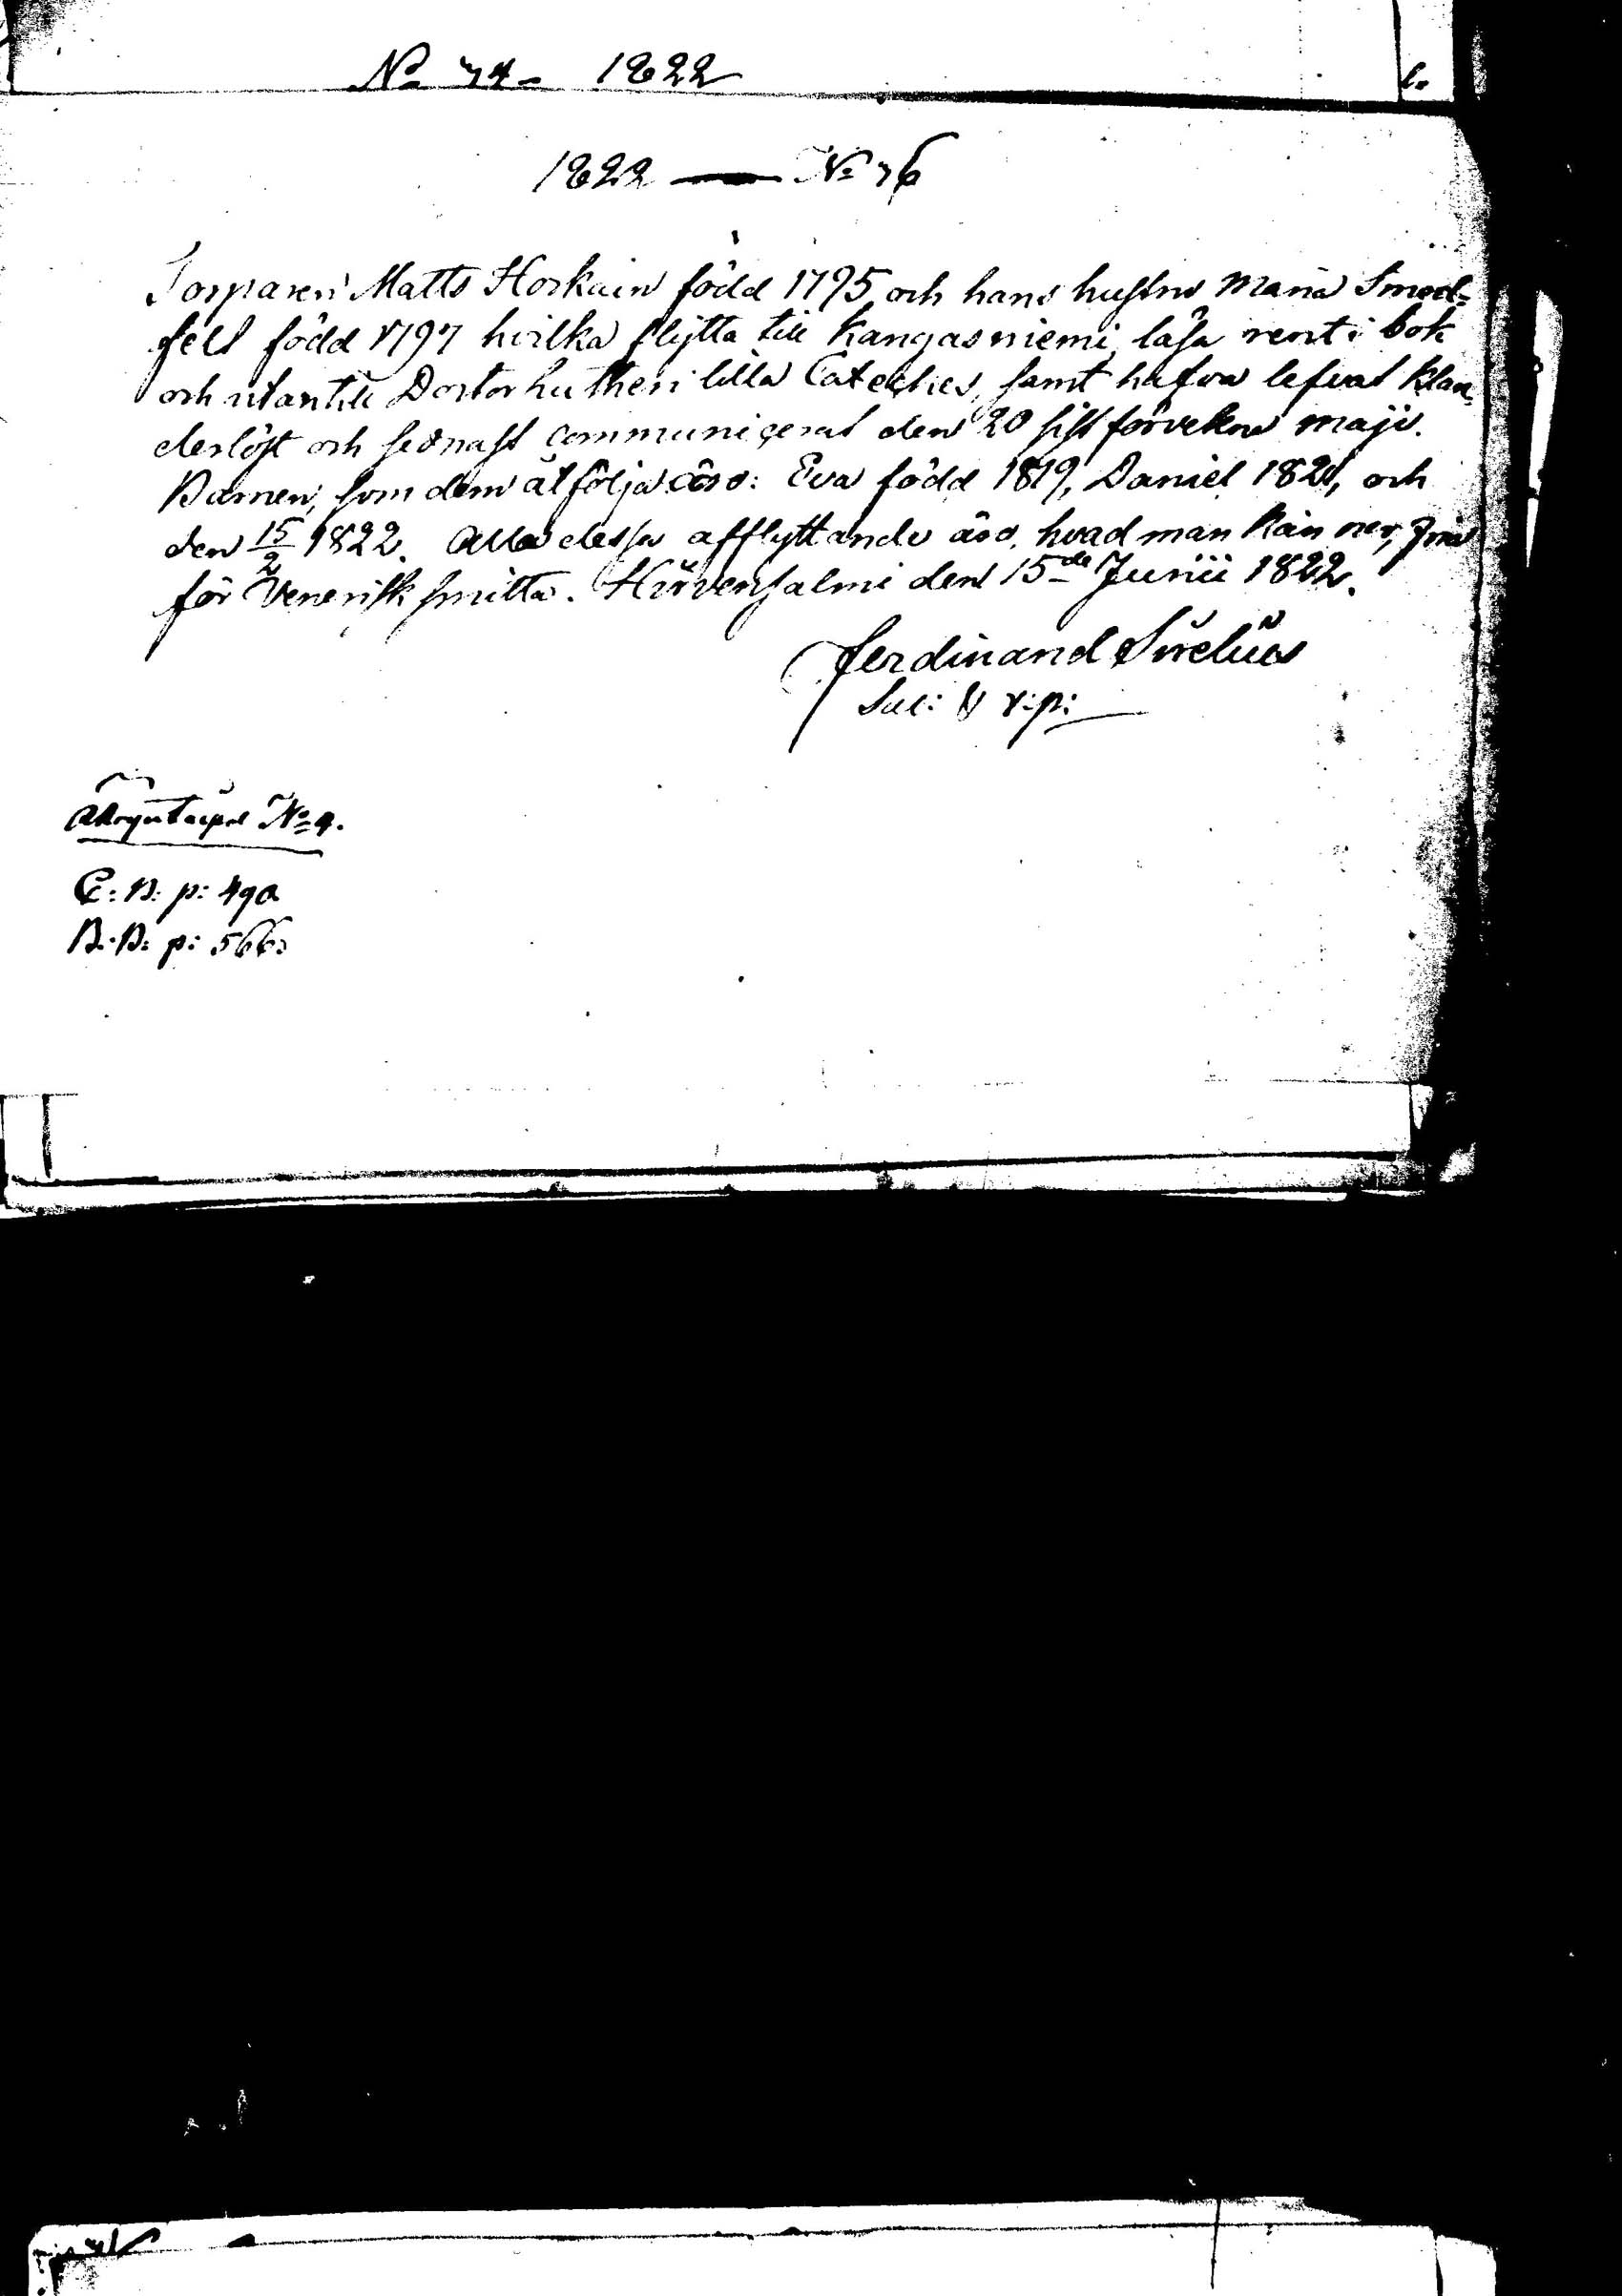 No 74 - 1822
1822 — No 76
Torparen Matts Horkain född 1795 och hans hustru Maria Smed=
felt född 1797 hvilka flytta till Kangasniemi, läsa rent i bok
och utantill Doctor Lutheri lilla Cateches, samt hafva lefvat klan=
derlöst och sednast communicerat den 20 sistförvekne maji.
Barnen, som dem åtfölja äro: Eva född 1819, Daniel 1821, och
den 15/2 1822. Alla dessa afflyttande äro, hvad man känner, fria
för Venerisk smitta. Hirvensalmi den 15de Junii 1822.
Ferdinand Sirelius
Sac: v: p:
No 4.
C: B: p: 490
B: B: p: 566